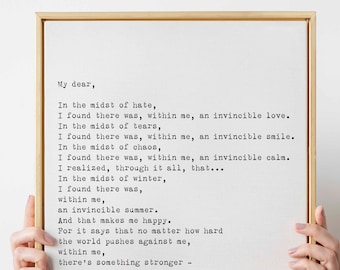 My dear,
In the midst of hate,
I found there was, within me, an invincible love.
In the midst of tears,
I found there was, within me, an invincible smile.
In the midst of chaos,
I found there was, within me, an invincible calm.
I realized, through it all, that...
In the midst of winter,
I found there was,
within me,
an invincible summer.
And that makes me happy.
For it says that no matter how hard
the world pushes against me,
within me,
there's something stronger –